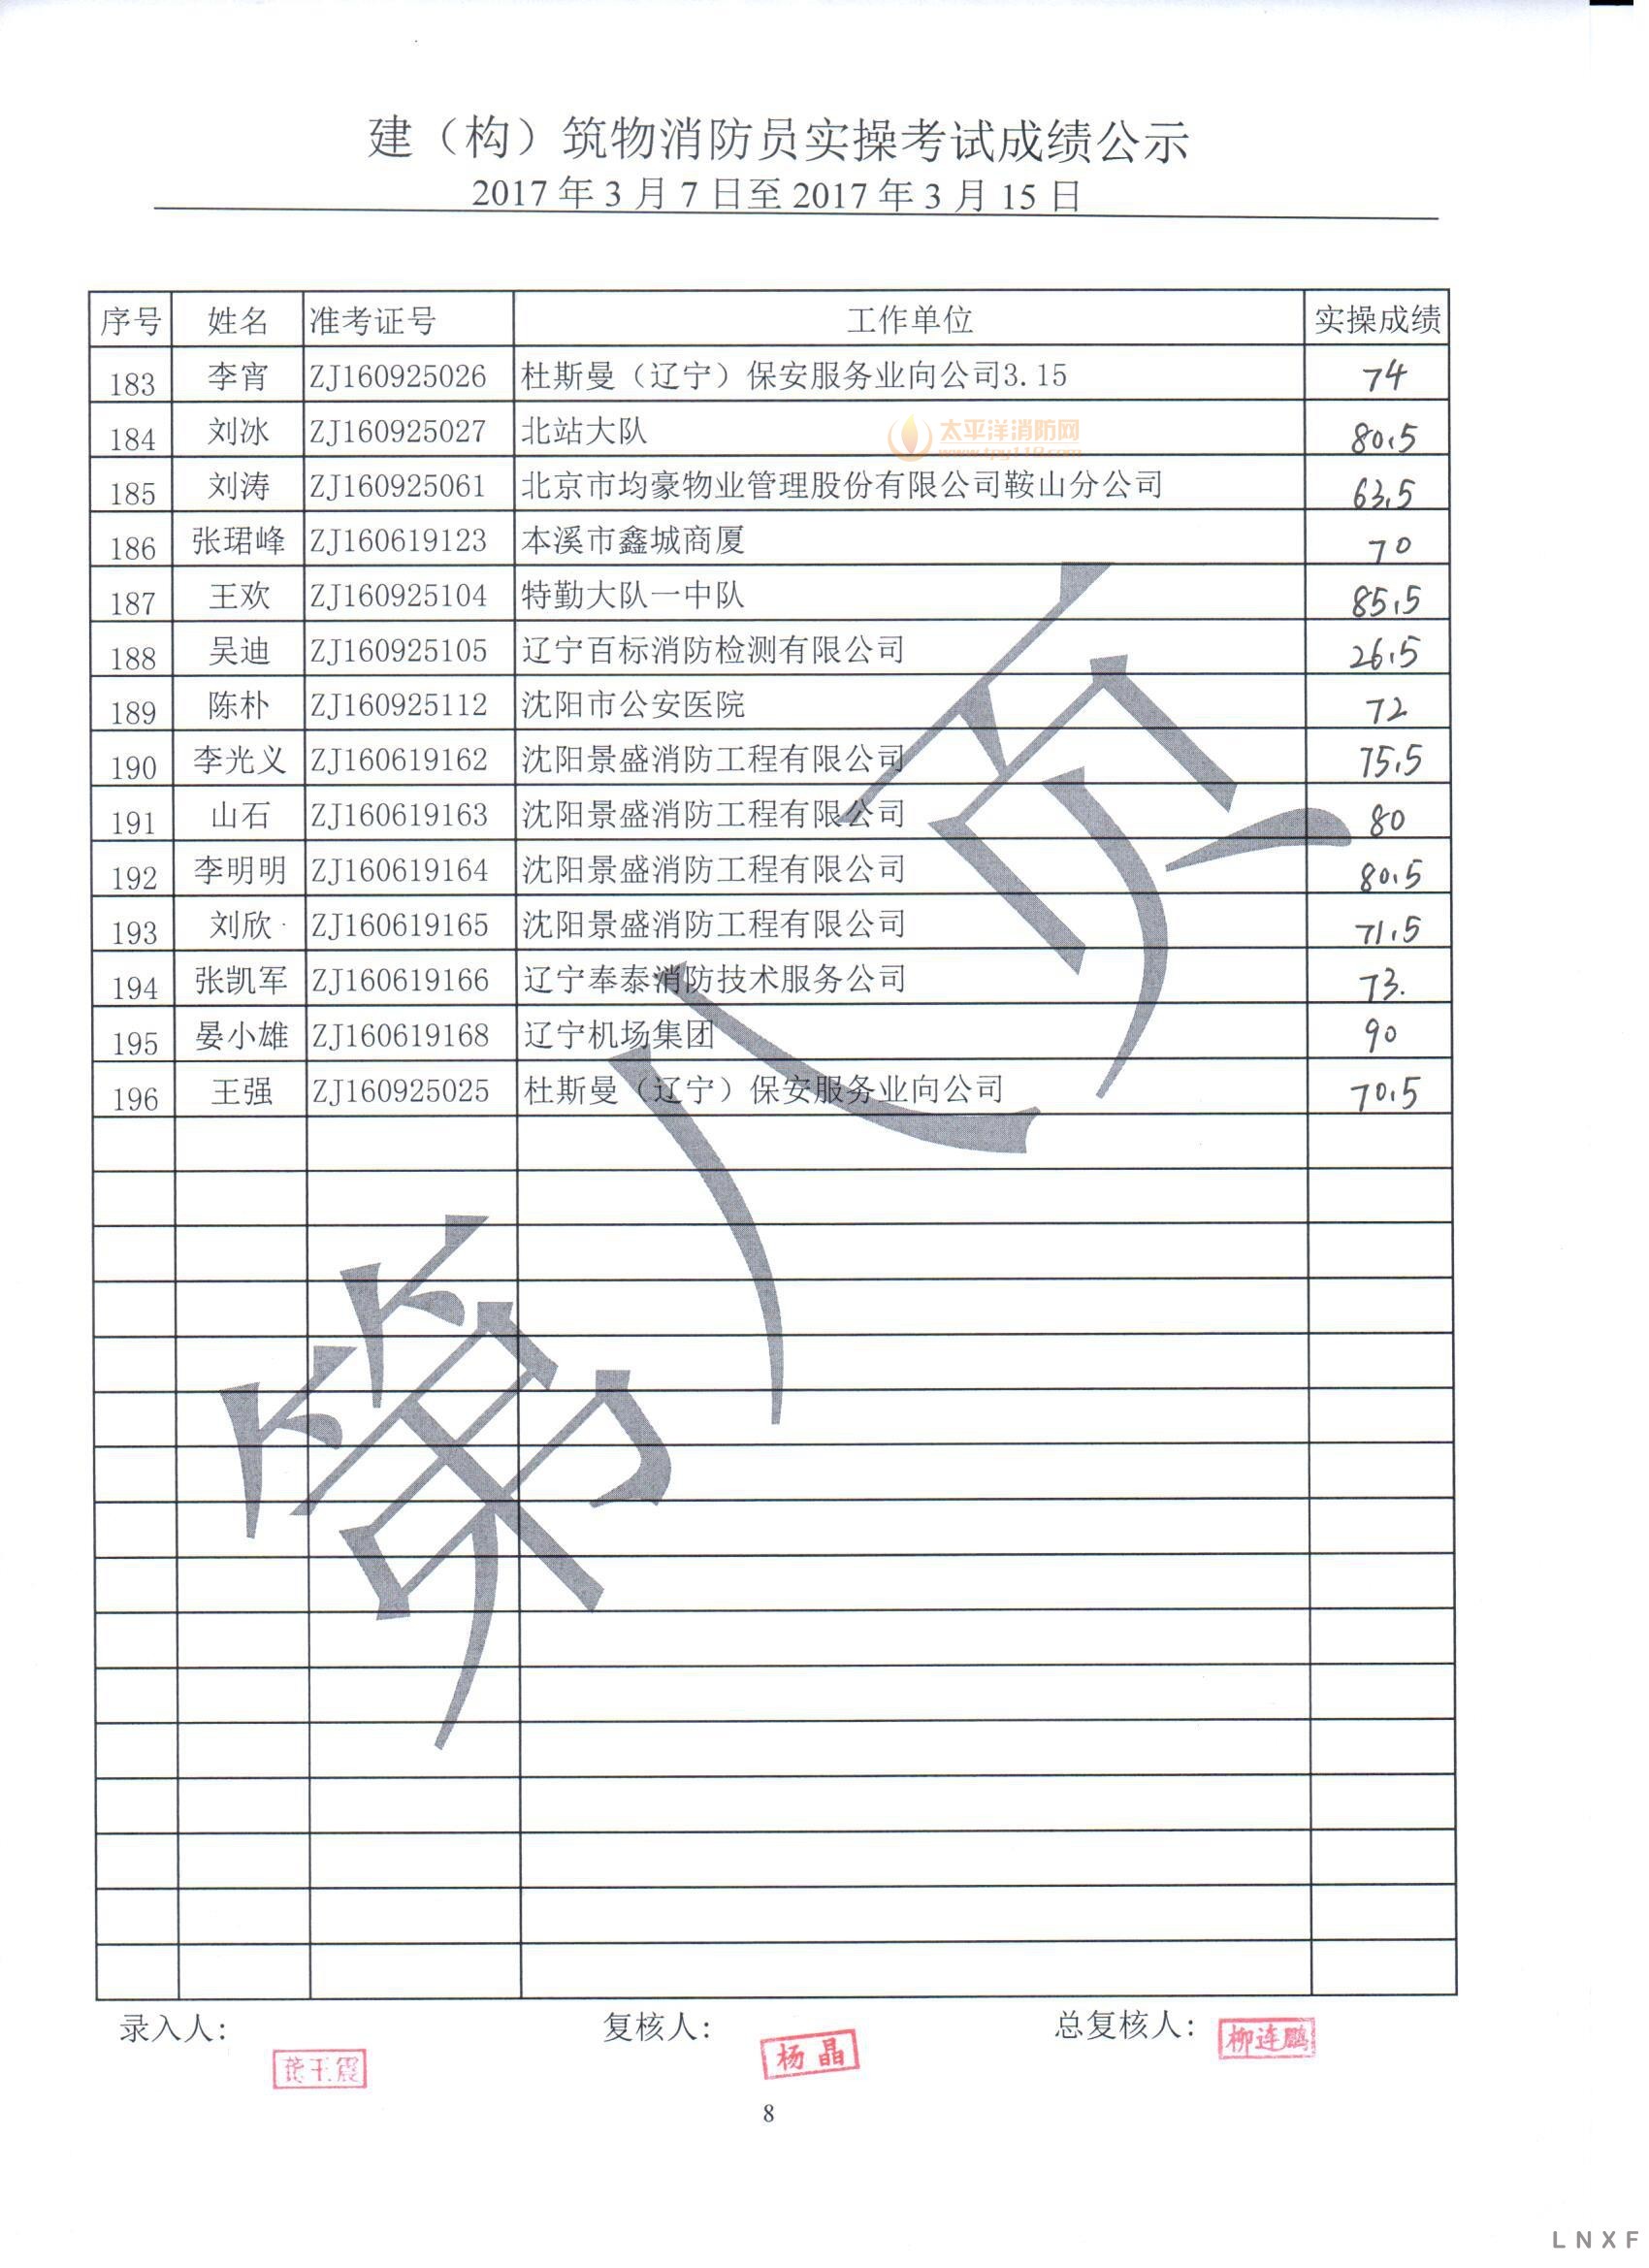 建（构）筑物消防员实操考试成绩公示
2017 年 3 月 7 日至 2017 年 3 月 15 日
序号 姓名 准考证号 工作单位 实操成绩
183 李宵 ZJ160925026 杜斯曼（辽宁）保安服务业向公司3.15 74
184 刘冰 ZJ160925027 北站大队 80.5
太平洋消防网
www.tpy119.com
185 刘涛 ZJ160925061 北京市均豪物业管理股份有限公司鞍山分公司 63.5
186 张珺峰 ZJ160619123 本溪市鑫城商厦 70
187 王欢 ZJ160925104 特勤大队一中队 85.5
188 吴迪 ZJ160925105 辽宁百标消防检测有限公司 26.5
189 陈朴 ZJ160925112 沈阳市公安医院 72
190 李光义 ZJ160619162 沈阳景盛消防工程有限公司 75.5
191 山石 ZJ160619163 沈阳景盛消防工程有限公司 80
192 李明明 ZJ160619164 沈阳景盛消防工程有限公司 80.5
193 刘欣 ZJ160619165 沈阳景盛消防工程有限公司 71.5
194 张凯军 ZJ160619166 辽宁奉泰消防技术服务公司 73.
195 晏小雄 ZJ160619168 辽宁机场集团 90
196 王强 ZJ160925025 杜斯曼（辽宁）保安服务业向公司 70.5
第八页
录入人： 复核人： 总复核人：
杨晶 柳连鹏
8
LNXF